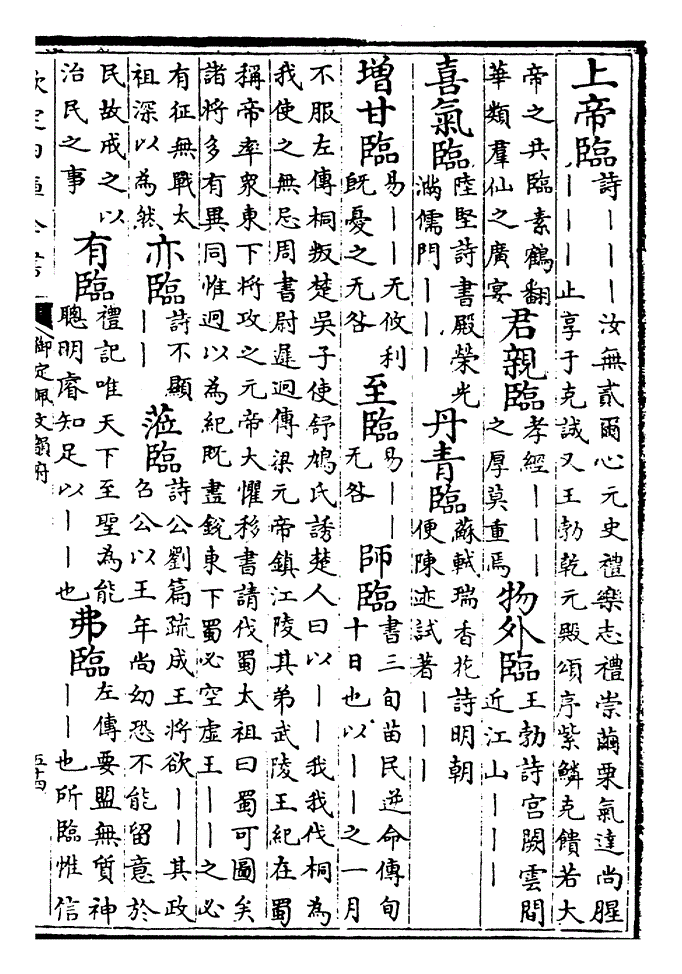 上帝臨詩｜｜｜汝無貳爾心元史禮樂志禮崇繭栗氣達尚腥
｜｜｜止享于克誠又王勃乾元殿頌序紫鱗克饋若大
帝之共臨素鶴翻
華類羣仙之廣宴
君親臨孝經｜｜｜
之厚莫重焉
物外臨王勃詩宮闕雲間
近江山｜｜｜
喜氣臨陸堅詩書殿榮光
滿儒門｜｜｜
丹青臨蘇軾瑞香花詩明朝
便陳迹試著｜｜｜
增甘臨易｜｜无攸利
既憂之无咎
至臨易｜｜
无咎
師臨書三旬苗民逆命傳旬
十日也以｜｜之一月
不服左傳桐叛楚吳子使舒鳩氏誘楚人曰以｜｜我我伐桐為
我使之無忌周書尉遲迥傳梁元帝鎮江陵其弟武陵王紀在蜀
稱帝率衆東下將攻之元帝大懼移書請伐蜀太祖曰蜀可圖矣
諸將多有異同惟迥以為紀既盡銳東下蜀必空虛王｜｜之必
有征無戰太
祖深以為然
亦臨詩不顯
｜｜
蒞臨詩公劉篇疏成王將欲｜｜其政
召公以王年尚幼恐不能留意於
民故戒之以
治民之事
有臨禮記唯天下至聖為能
聰明睿知足以｜｜也
弗臨左傳要盟無質神
｜｜也所臨惟信
欽定四庫全書
御定佩文韻府